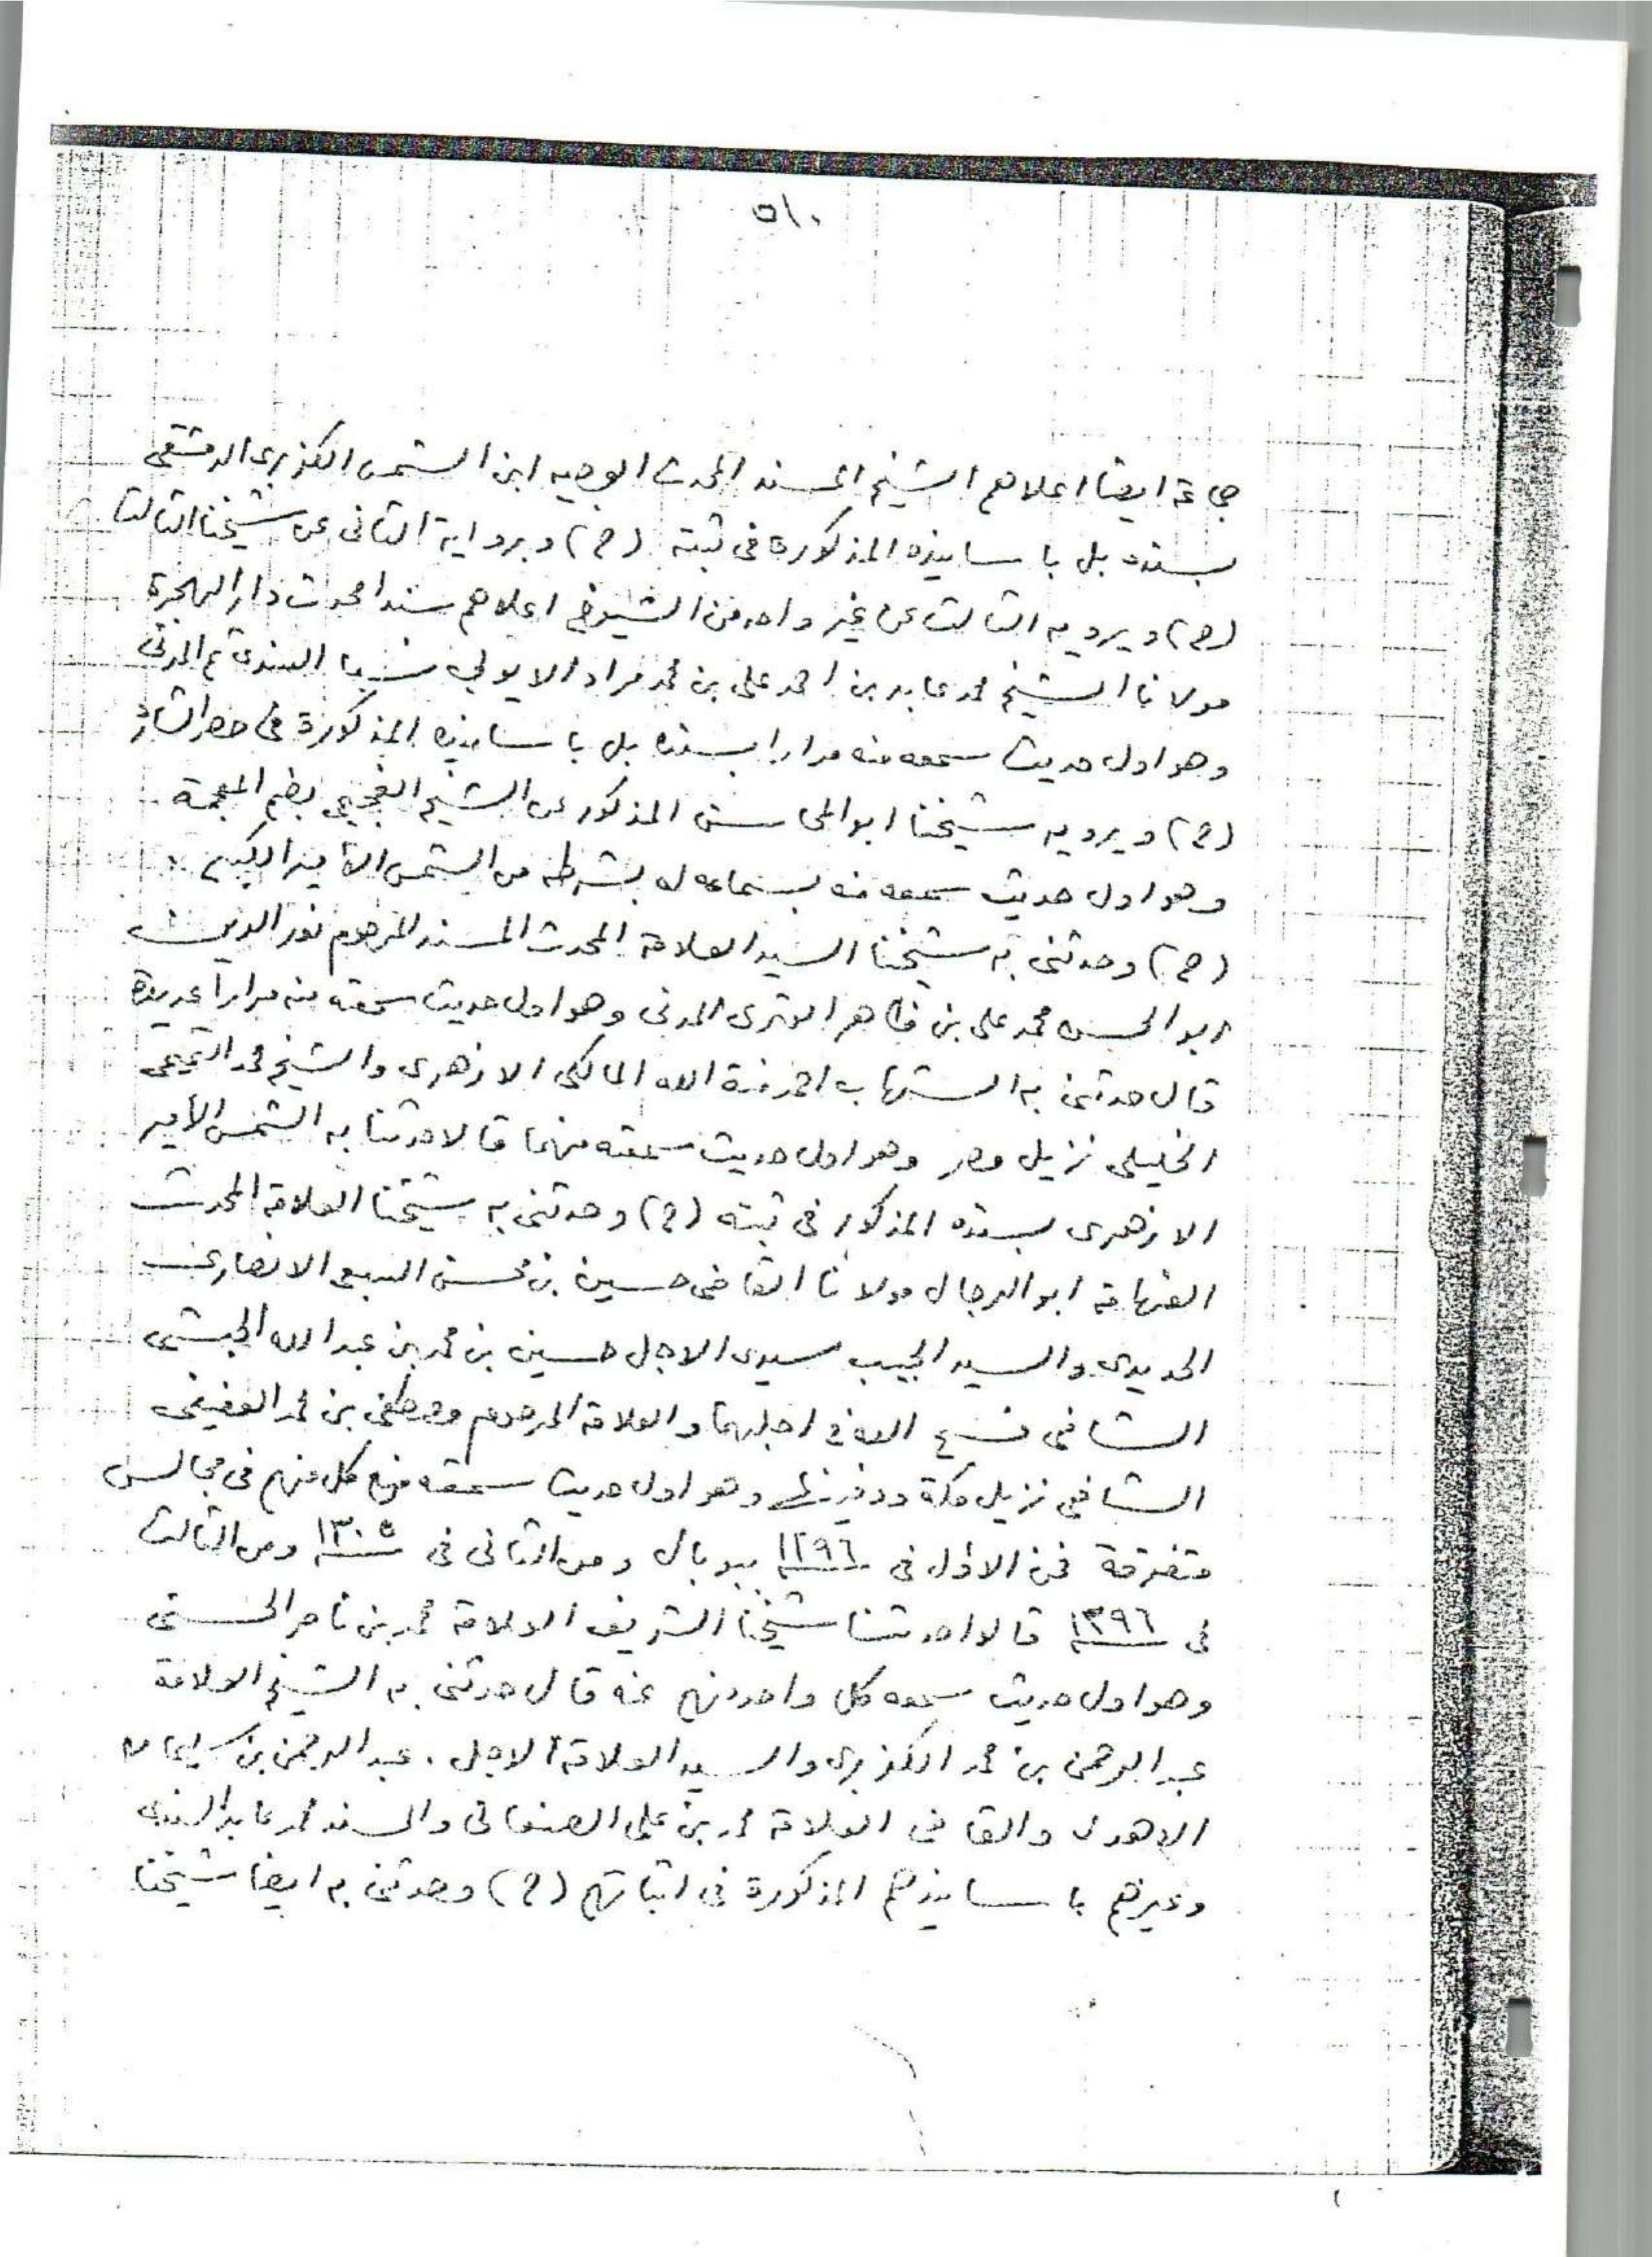 ٥١٠
جماعة ايضا اعلاهم الشيخ المسند المحدث الوجيه ابن الشمس الكزبرى الدمشقى
بسنده بل باسانيده المذكورة فى ثبته (ح) وبرواية الثانى عن شيخنا الثالث
(ح) ويرويه الثالث عن غير واحد من الشيوخ اعلاهم سندا محدث دار الهجرة
مولانا الشيخ محمد عابد بن احمد على بن محمد مراد الايوبي نسبا السندى ثم المدنى
وهو اول حديث سمعه منه مرارا بسنده بل باسانيده المذكورة فى حصر الشارد
(ح) ويرويه شيخنا ابو المحاسن المذكور عن الشيخ بضم المعجمة
وهو اول حديث سمعه منه بسماعه له بشرطه من الشمس الأمير الكبير
(ح) وحدثنى به شيخنا السيد العلامة المحدث المسند المرحوم نور الدين
ابو الحسن محمد على بن ظاهر الوترى المدنى وهو اول حديث سمعته منه مرارا عديدة
قال حدثنى به الشهاب احمد منة الله المالكى الازهرى والشيخ محمد التميمى
الخليلى نزيل مصر وهو اول حديث سمعته منهما قالا حدثنا به الشمس الأمير
الازهرى بسنده المذكور فى ثبته (ح) وحدثنى به شيخنا العلامة المحدث
الفهامة ابو الرجال مولانا القاضى حسين بن محسن السبعى الانصارى
الحديدى والسيد الحبيب سيدى الاجل حسين بن محمد بن عبد الله الحبشى
الشافى فسح الله فى اجلهما والعلامة المرحوم مصطفى بن محمد العفيفى
الشافعى نزيل مكة ودفينها وهو اول حديث سمعته من كل منهم فى مجالس
متفرقة فمن الاول فى ١٢٩٦ ببوبال ومن الثانى فى ١٣٠٥ ومن الثالث
فى ١٣٩٦ قالوا حدثنا شيخنا الشريف العلامة محمد بن ناصر الحسنى
وهو اول حديث سمعه كل واحد منهم عنه قال حدثنى به الشيخ العلامة
عبد الرحمن بن محمد الكزبرى والسيد العلامة الاجل . عبد الرحمن بن سليمان
الاهدل والقاضى العلامة محمد بن على الصنعانى والمسند محمد عابد السندى
وغيرهم باسانيدهم المذكورة فى اثباتهم (ح) وحدثنى به ايضا شيخنا